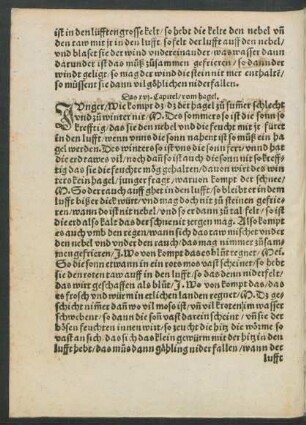 ist in den lüfften grosse kelt / so hebt die kelte den nebel vñ
den taw mit je in den lufft. so felt der lufft auff den nebel /
vnd blaset sie der wind vndereinander / was wasser dann
darunder ist das můß zůsammen gefrieren / so dann der
windt geligt / so mag der wind die stein nit mer enthaltẽ /
so müssent sie dann vil göhlichen niderfallen.
Das xvj. Capitel / vom hagel.
JVnger / Wie kompt dz dz der hagel zů sum̃er schlecht
vnd zů winter nit / M. Des sommers so ist die sonn so
krefftig / das sie den nebel vnd die feuchte mit je fürt
in den lufft / wenn vnns die sonn nahent ist so můß ein ha
gel werden. Des winters so ist vns die sonn ferr / vnnd hat
die erd rawes vil / noch dañ so ist auch die sonn nit so kreff-
tig das sie die feuchte mög gehalten / dauon wirt des win
ters kein hagel / junger fragt / warumb kompt der schnee /
M. So der rauch auff gher in den lufft / so bleibt er in dem
lufft biß er dick würt / vnd mag doch nit zů steinen gefrie-
ren / wann do ist nit nebel / vnd so er dann zů tal felt / so ist
die erd also kalt das der schne nit zergen mag. Also kompt
es auch vmb den regen / wann sich das taw mischet vnder
den nebel vnd vnder den rauch / das mag nimmer zůsam-
men gefrieren / J. Wo von kompt das es blůt regnet / Meis.
So die sonn etwann in ein rots mos vast scheinet / so hebt
sie den roten taw auff in den lufft / so das denn niderfelt /
das wirt geschaffen als blůt / J. Wo von kompt das / das
es frosch vnd würm in etlichen landen regnet / M. Dz ge-
schicht nim̃er dañ wo vil mosz ist / vñ vil krotten im wasser
schwebent / so dann die soñ vast darein scheint / vñ sie der
bösen feuchten innen wirt / so zeucht die hitz die würme so
vast an sich / das so sich das klein gewürm mit der hitz in den
lufft hebt / das můs dann gähling nider fallen / wann der
lufft